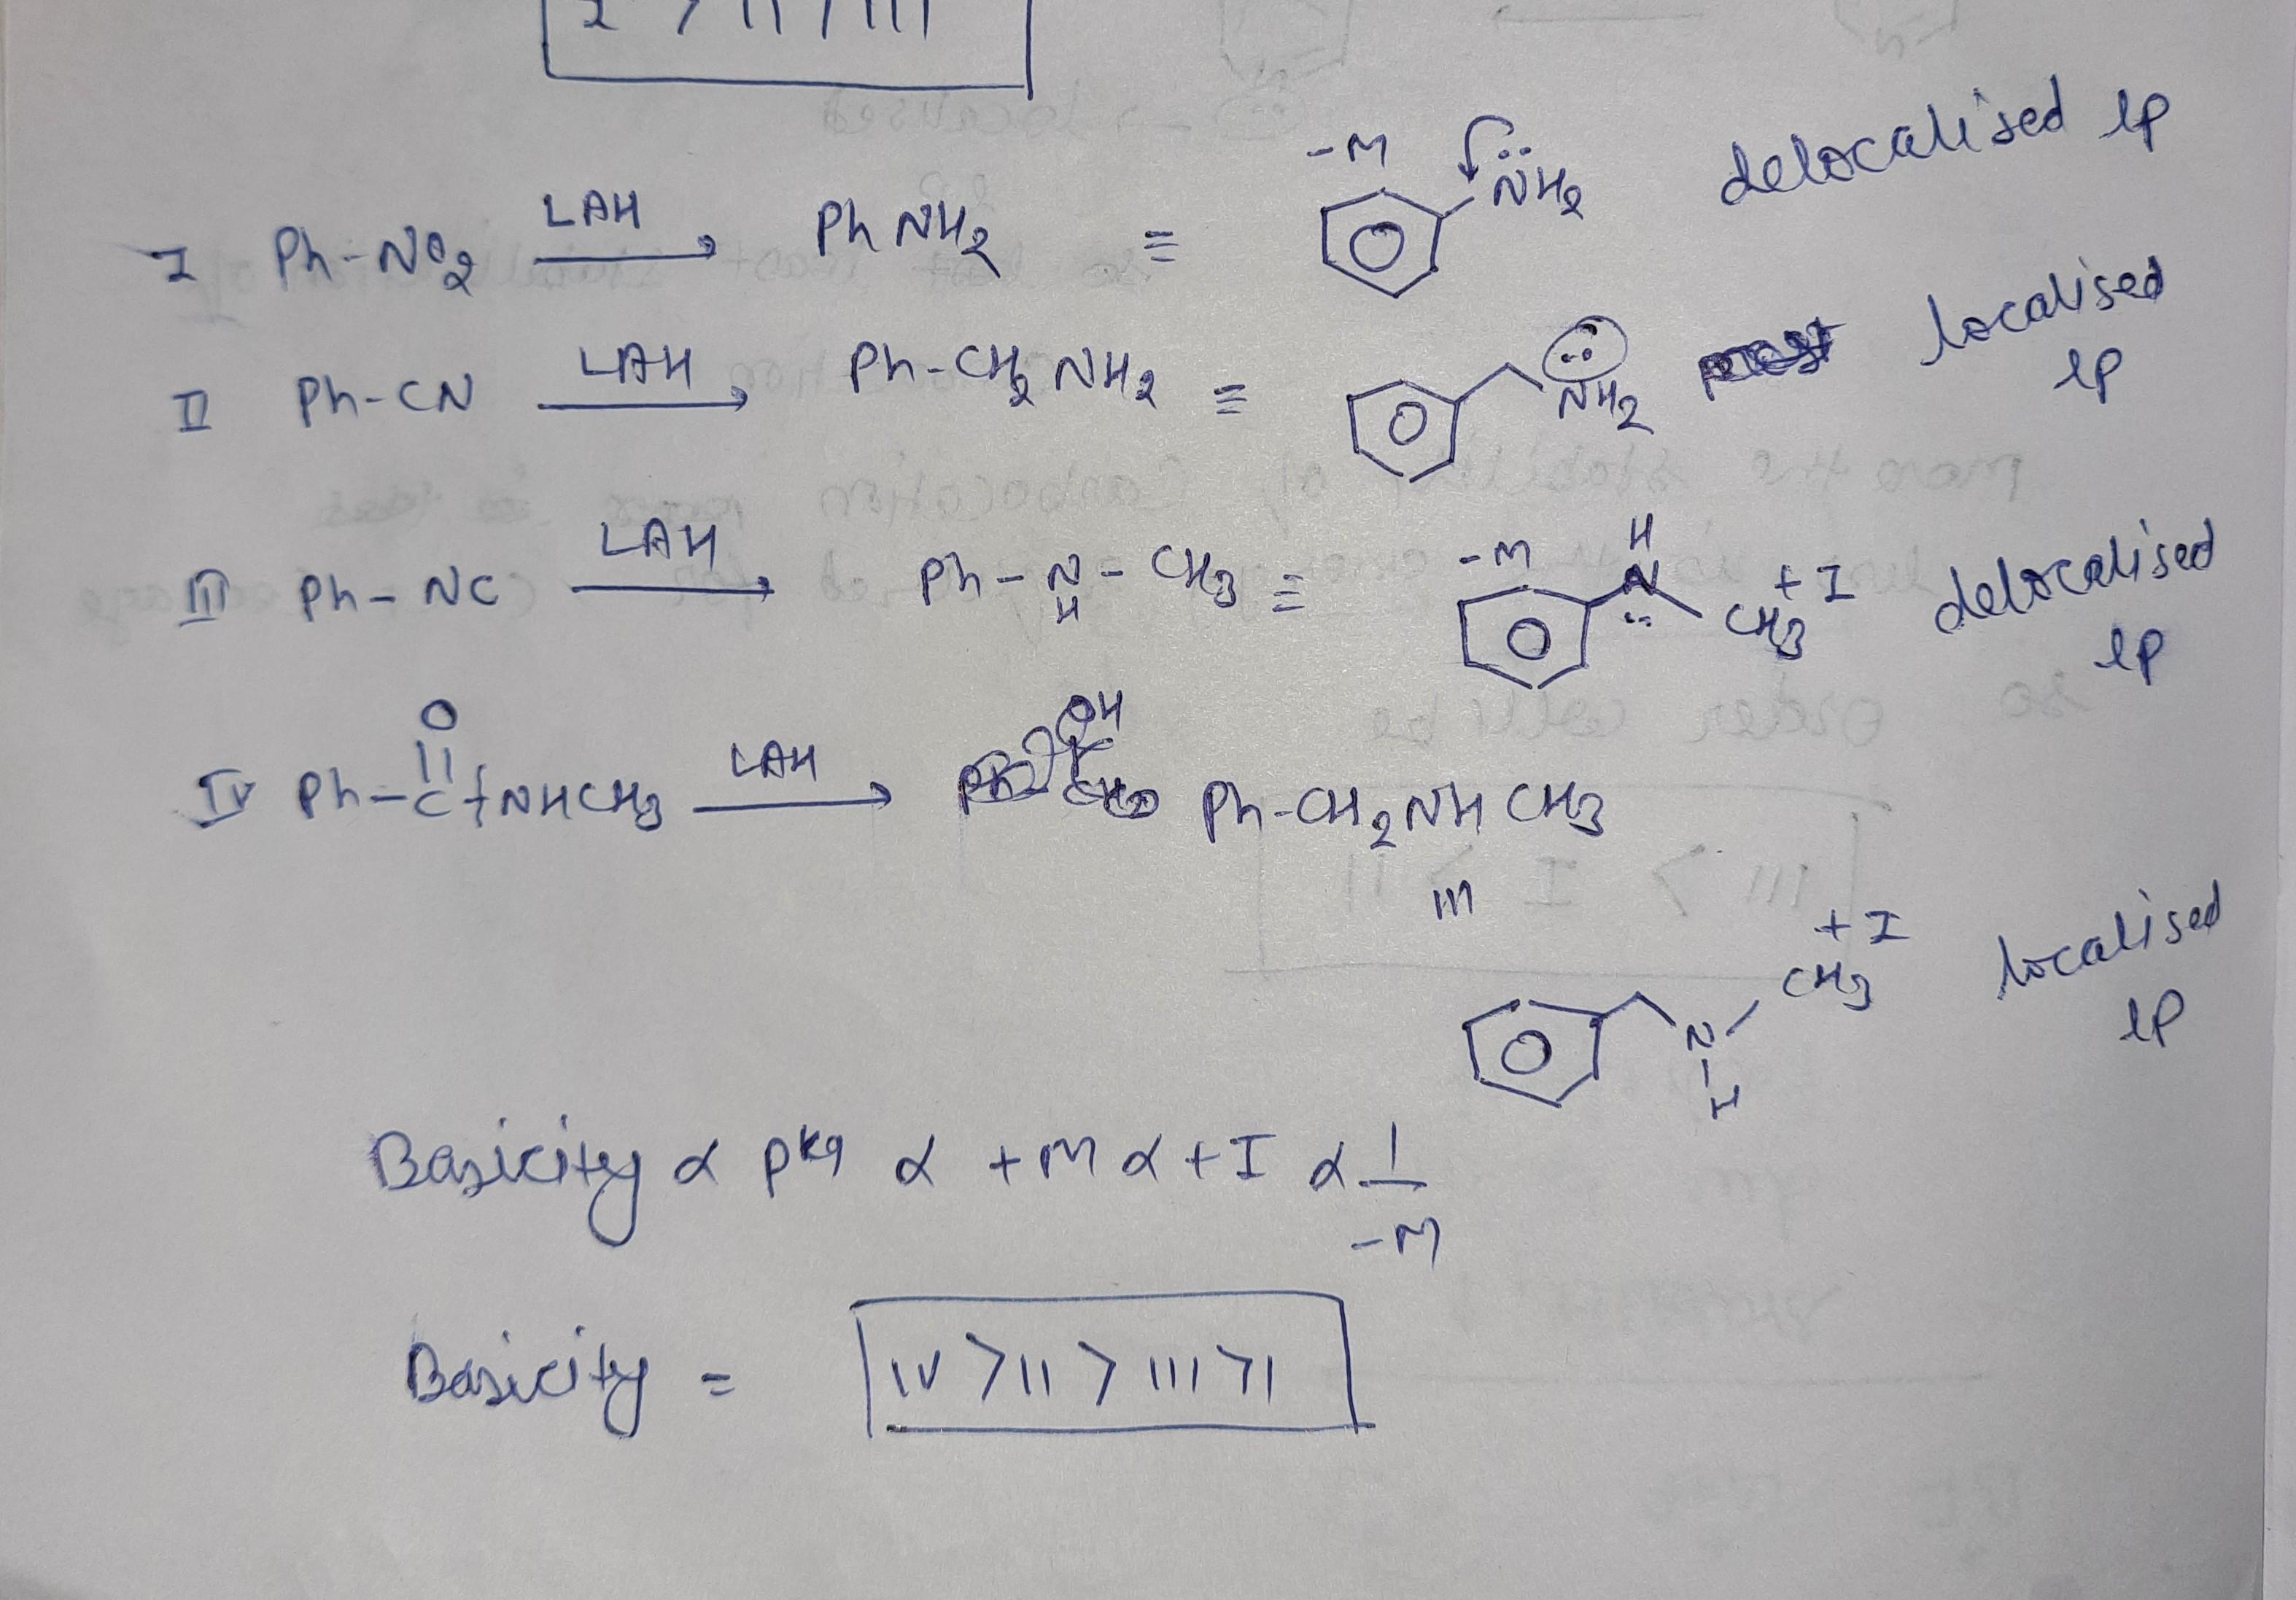 I > II > III
-M
I Ph-NO2 LAH → PhNH2 ≡ NH2 delocalised lp
II Ph-CN LAH → Ph-CH2NH2 ≡ NH2 localised lp
III Ph-NC LAH → Ph-N-CH3 ≡ -M H N CH3 +I delocalised lp
H
O
IV Ph-C-NHCH3 LAH → Ph-CH2NHCH3
≡
+I
CH3 localised lp
N
H
Basicity ∝ pKa ∝ +M ∝ +I ∝ 1/-M
Basicity = IV > II > III > I